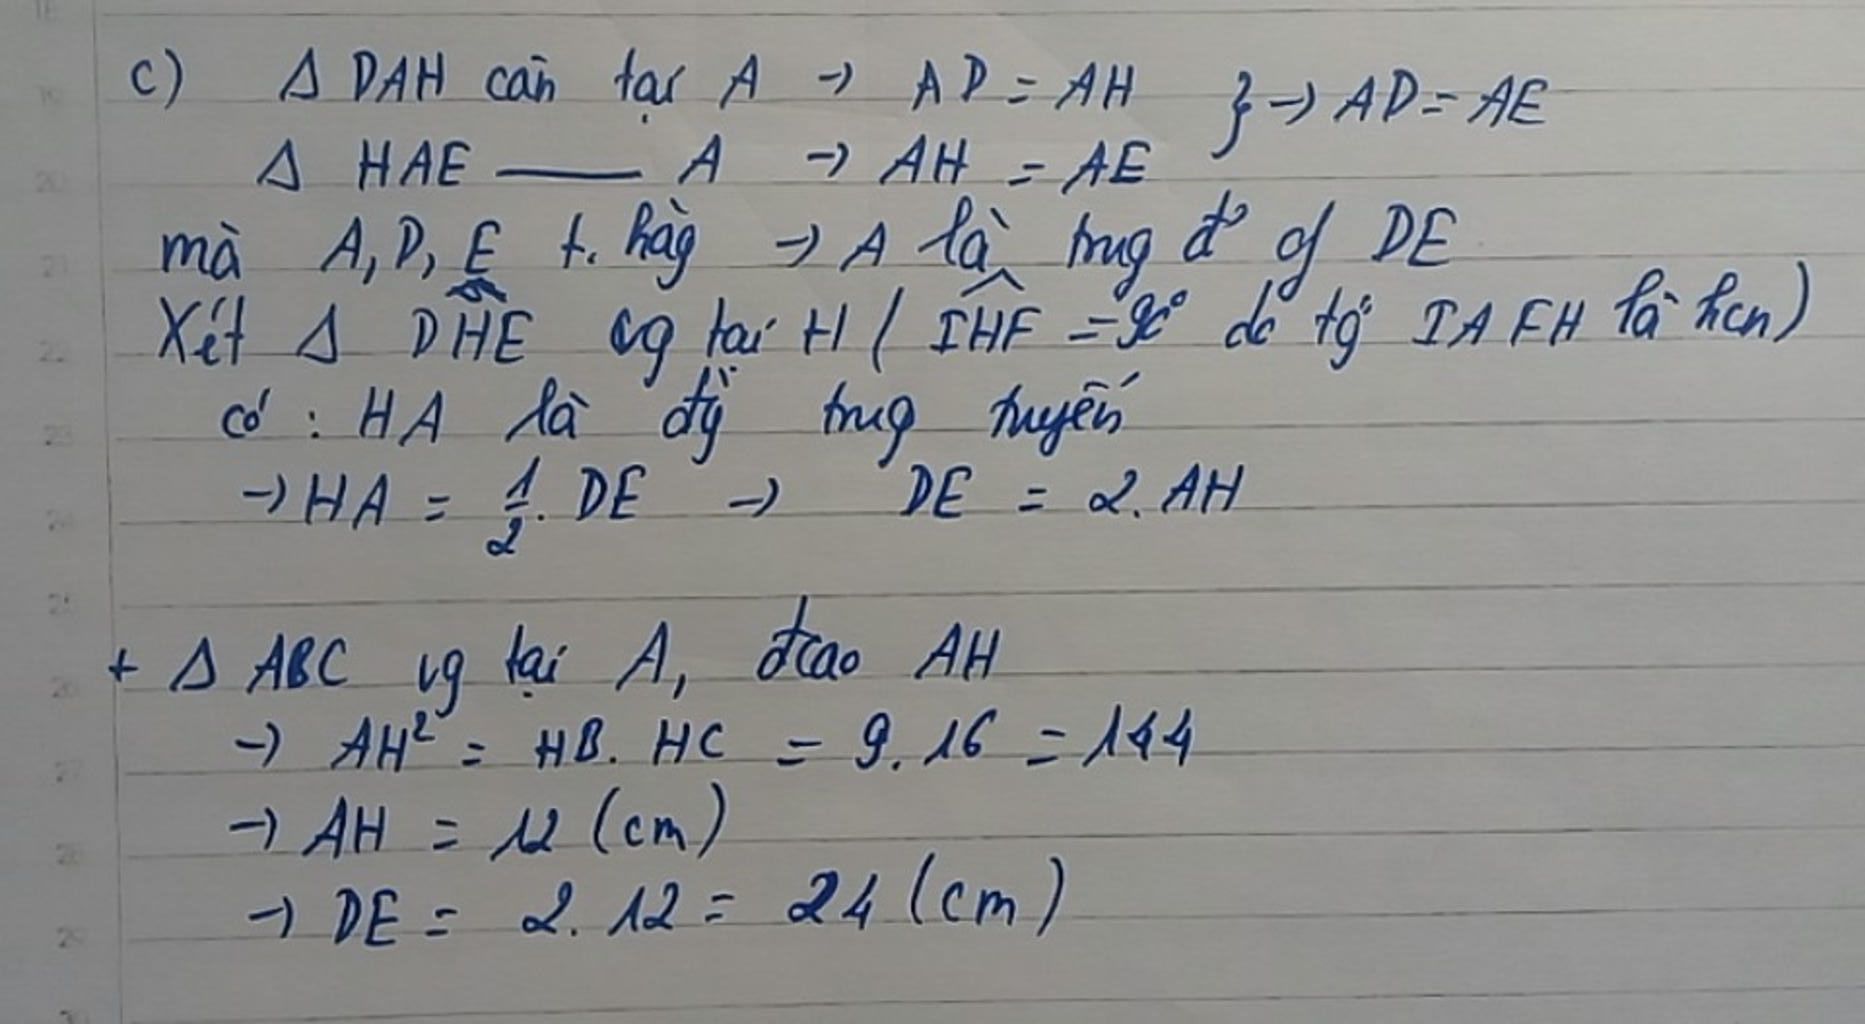 c) Δ DAH cân tại A → AD = AH } → AD = AE
Δ HAE —— A → AH = AE
mà A, D, E t. hàg → A là trug đ° of DE
Xét Δ DHE vg tại H ( IHF = 90° do tg IAFH là hcn)
có : HA là đg trug tuyến
→ HA = 1/2 . DE → DE = 2. AH
+ Δ ABC vg tại A, đcao AH
→ AH² = HB. HC = 9. 16 = 144
→ AH = 12 (cm)
→ DE = 2. 12 = 24 (cm)